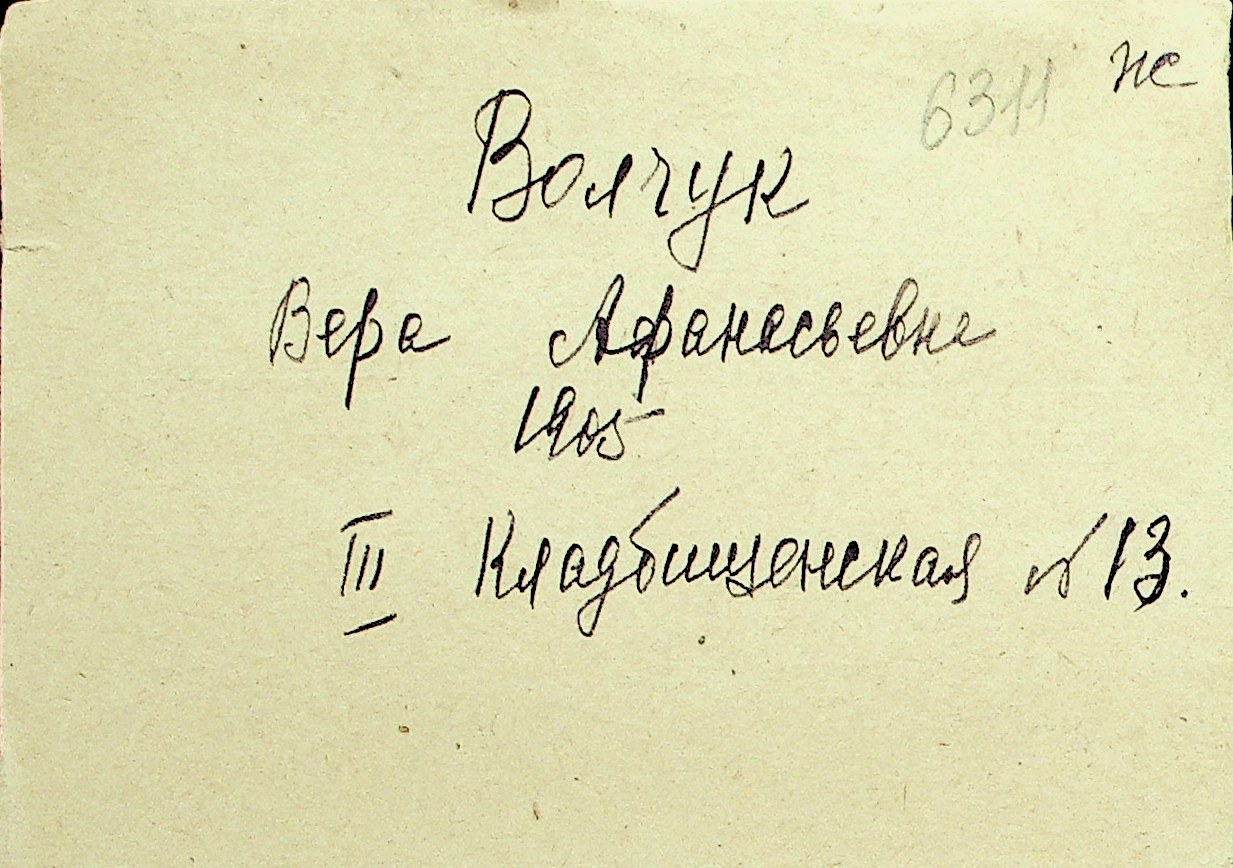 6311 нс
Волчук
Вера Афанасьевна
1905
III Кладбищенская № 13.